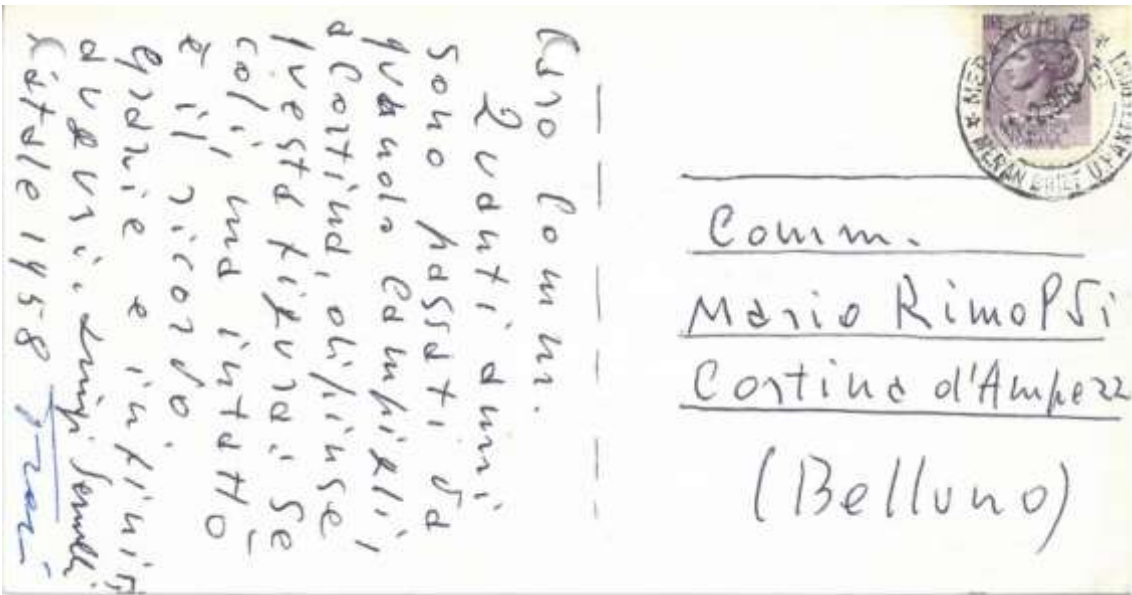 Caro Comm.
Quanti anni
sono passati da
quando Campigli,
a Cortina, dipinse
questa figura: Se
coli ma intatto
è il ricordo.
Grazie e infiniti
auguri. Luigi
Natale 1958
LIRE 25
MERAN BRIEF U.
Comm.
Mario Rimoldi
Cortina d'Ampezz
(Belluno)